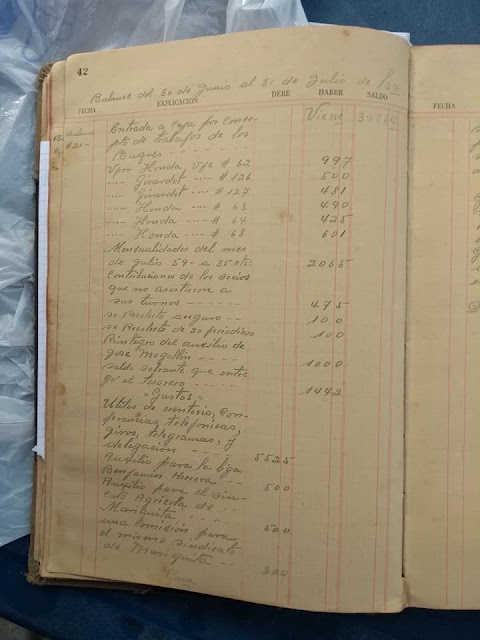 42
Balance del 30 de Junio al 31 de Julio de 1.934
FECHA EXPLICACION DEBE HABER SALDO FECHA
Viene
Entrada a Caja por Conce-
#21- pto de trabajos de los
Buques - - - -
Vpor Honda Vje # 62 997
" Girardot " # 126 500
" Girardot " # 127 481
" Honda " # 63 490
" Honda " # 64 425
" Honda " # 68 601
Mensualidades del mes
de Julio 59 - a 35 cts. 2065
Contribucion de los socios
que no asistieron a
sus turnos - - - - - - 475
se Recolecto 100
se Recolecto de 20 periodicos 100
Reintegro del auxilio de
Jose Mogollon - - - - 1000
saldo sobrante que entre
go el tesorero - - - - 1442
- Gastos -
Utiles de escritorio, Con-
ferencias, telefonicas,
giros, telegramas, y
delegacion - - - - 5525
Auxilio para la liga
Benjamin Herrera - - 500
Auxilio para el sin-
cato Agricola de - -
Mariquita - - - - 500
una Comision para
el mismo sindicato
de Mariquita - - 200
Pasa